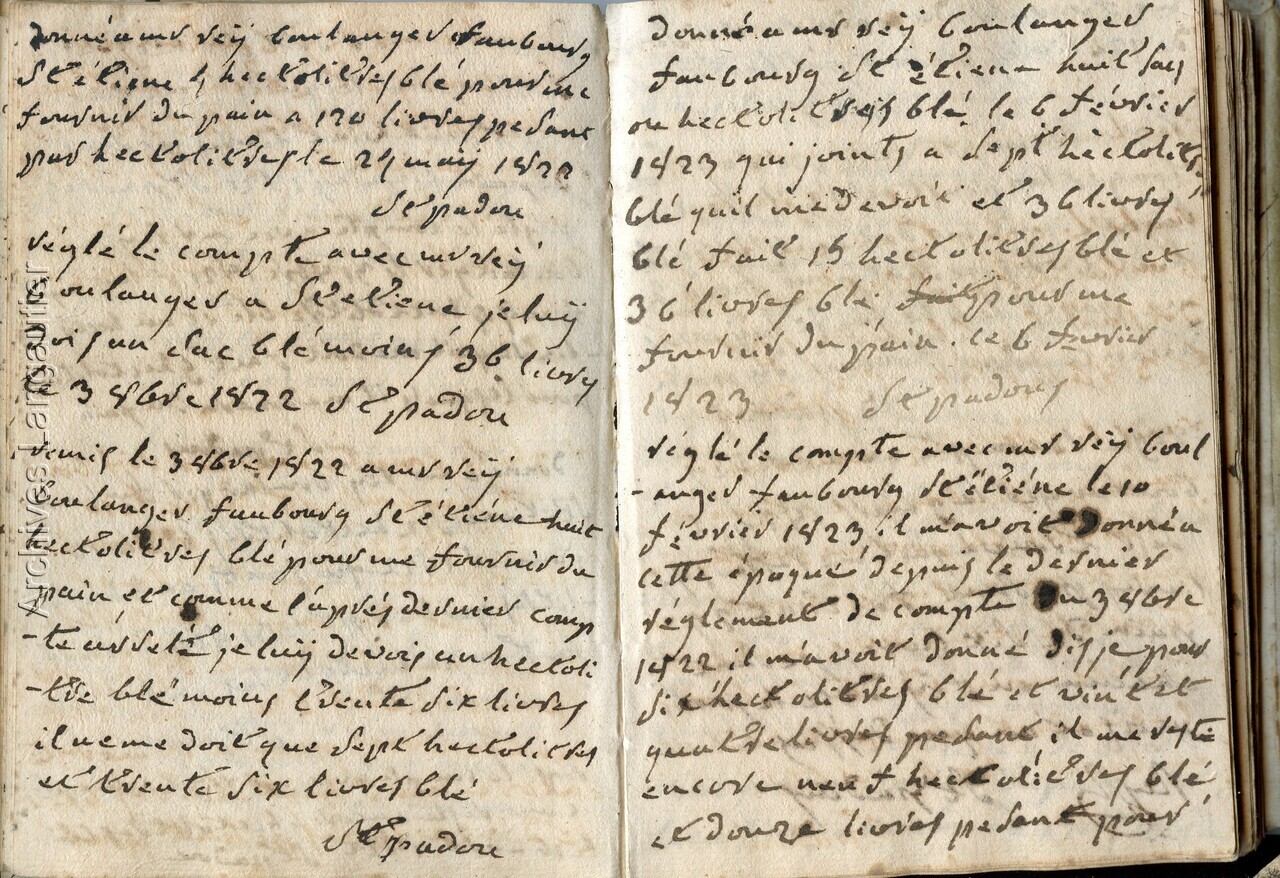 donné a mr rëÿ boulanger faubourg
St étiene 4 hectolitres blé pour me
fournir du pain a 120 livres pesant
par hectolitres le 24 maÿ 1822
St padou
réglé le compte avec mr rëÿ
boulanger a St etiene je luÿ
dois un sac blé moins 36 livres
le 3 8bre 1822 St padou
remis le 3 8bre 1822 a mr rëÿ
boulanger faubourg St étiéne huit
hectolitres blé pour me fournir du
pain et comme l'aprés dernier comp
-te arreté je luÿ devois un hectoli
-tre blé moins trente six livres
il ne me doit que sept hectolitres
et trente six livres blé
St padou
donné a mr rëÿ boulanger
faubourg St étiene huit sacs
ou hectolitres blé le 6 février
1823 qui joints a sept hectolitres
blé quil me devoit et 36 livres
blé fait 15 hectolitres blé et
36 livres blé pour me
fournir du pain. le 6 fevrier
1823 St padou
réglé le compte avec mr rëÿ boul
-anger faubourg St étiéne le 10
février 1823 il m'avoit donné a
cette époque depuis le dernier
réglement de compte du 3 8bre
1822 il m'avoit donné dis je pour
six hectolitres blé et vint et
quatre livres pesant il me reste
encore neuf hectolitres blé
et douze livres pesant pour
Archives Langarfier